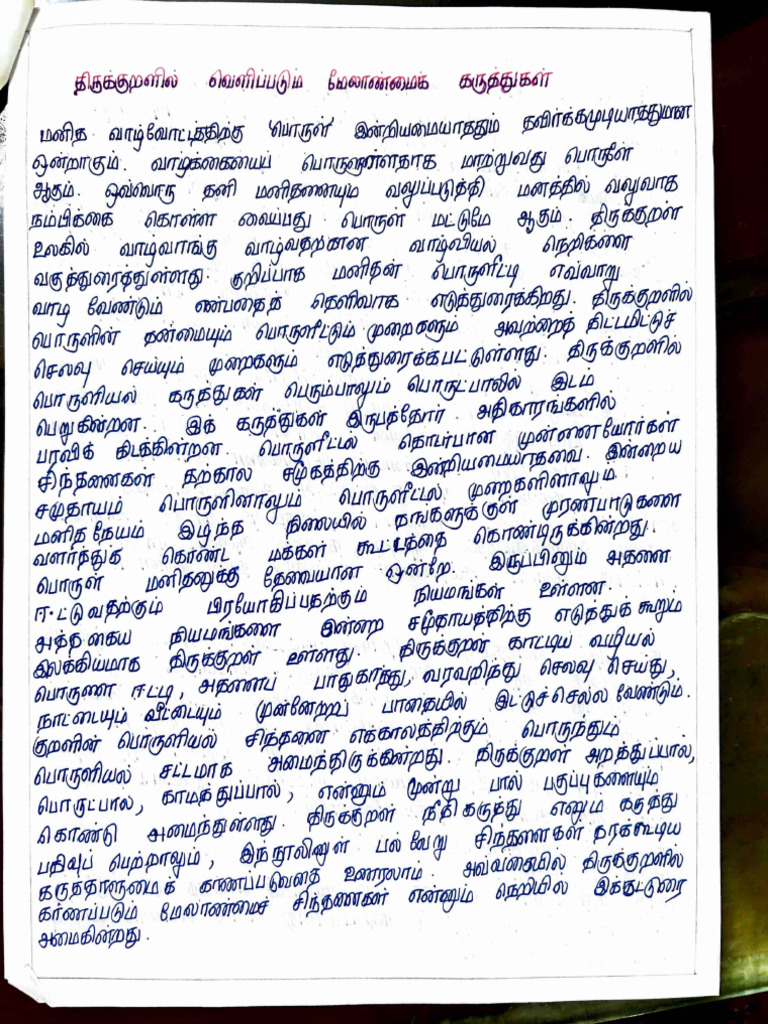 திருக்குறளில் வெளிப்படும் மேலாண்மைக் கருத்துகள்
மனித வாழ்வோட்டத்திற்கு 'பொருள்' இன்றியமையாததும் தவிர்க்கமுடியாததுமான
ஒன்றாகும். வாழ்க்கையைப் பொருளுள்ளதாக மாற்றுவது பொருளே
ஆகும். ஒவ்வொரு தனி மனிதனையும் வலுப்படுத்தி மனத்தில் வலுவாக
நம்பிக்கை கொள்ள வைப்பது பொருள் மட்டுமே ஆகும். திருக்குறள்
உலகில் வாழ்வாங்கு வாழ்வதற்கான வாழ்வியல் நெறிகளை
வகுத்துரைத்துள்ளது. குறிப்பாக மனிதன் பொருளீட்டி எவ்வாறு
வாழ வேண்டும் என்பதைத் தெளிவாக எடுத்துரைக்கிறது. திருக்குறளில்
பொருளின் தன்மையும் பொருளீட்டும் முறைகளும் அவற்றைத் திட்டமிட்டுச்
செலவு செய்யும் முறைகளும் எடுத்துரைக்கபட்டுள்ளது. திருக்குறளில்
பொருளியல் கருத்துகள் பெரும்பாலும் பொருட்பாலில் இடம்
பெறுகின்றன. இக் கருத்துகள் இருபத்தோர் அதிகாரங்களில்
பரவிக் கிடக்கின்றன. பொருளீட்டல் தொடர்பான முன்னையோர்கள்
சிந்தனைகள் தற்கால சமூகத்திற்கு இன்றியமையாதவை. இன்றைய
சமுதாயம் பொருளினாலும் பொருளீட்டல் முறைகளினாலும்
மனிதநேயம் இழந்த நிலையில் தங்களுக்குள் முரண்பாடுகளை
வளர்த்துக் கொண்ட மக்கள் கூட்டத்தை கொண்டிருக்கின்றது.
பொருள் மனிதனுக்கு தேவையான ஒன்றே. இருப்பினும் அதனை
ஈட்டுவதற்கும் பிரயோகிப்பதற்கும் நியமங்கள் உள்ளன.
அத்தகைய நியமங்களை இன்றை சமுதாயத்திற்கு எடுத்துக் கூறும்
இலக்கியமாக திருக்குறள் உள்ளது. திருக்குறள் காட்டிய வழியல்
பொருளை ஈட்டி, அதனைப் பாதுகாத்து, வரவறிந்து செலவு செய்து,
நாட்டையும் வீட்டையும் முன்னேற்றப் பாதையில் இட்டுச்செல்ல வேண்டும்.
குறளின் பொருளியல் சிந்தனை எக்காலத்திற்கும் பொருந்தும்
பொருளியல் சட்டமாக அமைந்திருக்கின்றது. திருக்குறள் அறத்துப்பால்,
பொருட்பால், காமத்துப்பால், என்னும் மூன்று பால் பகுப்புகளையும்
கொண்டு அமைந்துள்ளது. திருக்குறள் நீதிகருத்து எனும் கருத்து
பதிவுப் பெற்றாலும், இந்நூலினுள் பல்வேறு சிந்தனைகள் தரக்கூடிய
கருத்தாளுமைக் காணப்படுவதை உணரலாம். அவ்வகையில் திருக்குறளில்
காணப்படும் மேலாண்மைச் சிந்தனைகள் என்னும் நெறியில் இக்கட்டுரை
அமைகின்றது.